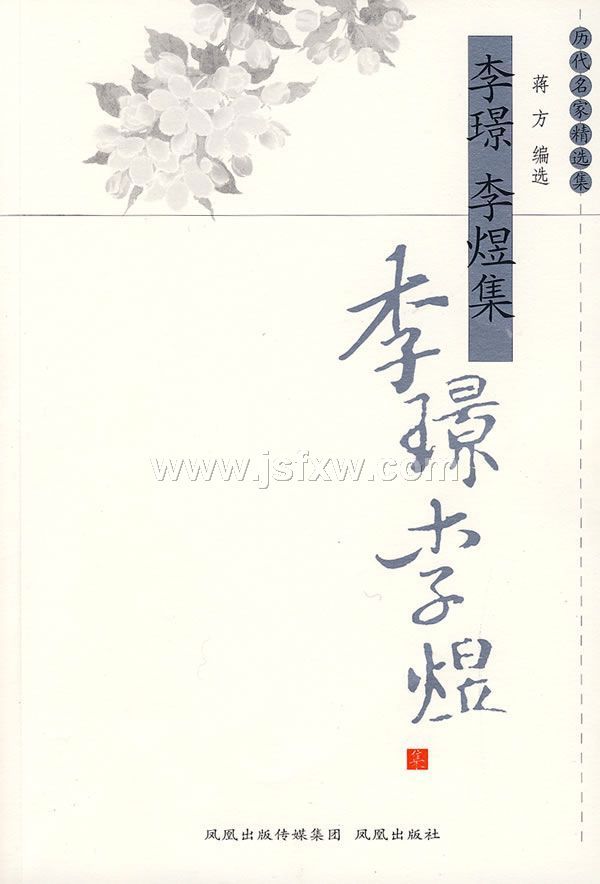 历代名家精选集
蒋方 编选
李璟 李煜集
李璟李煜
集
www.jsfxw.com
凤凰出版传媒集团 凤凰出版社